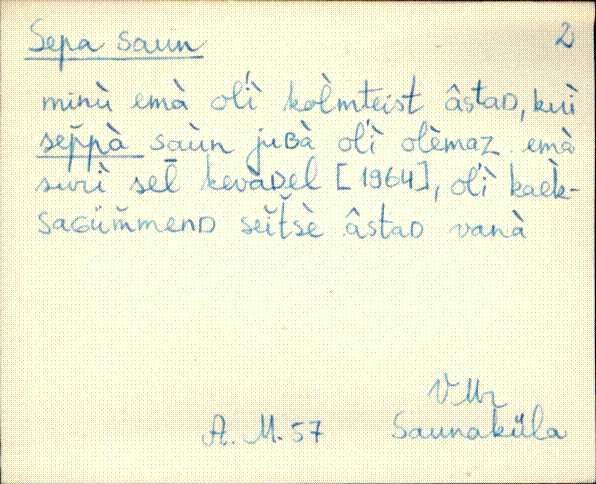 Sepa saun 2
minù emà ol'ì kolmteist âstaD, kuì
sep̆pà saùn juʙà ol'ì olèmaz. emà
surì sel̄ kevàDel [1964], ol'ì kaèk-
saGüm̆menD seit̆sè âstaD vanà
V Mr
A. M. 57 Saunaküla